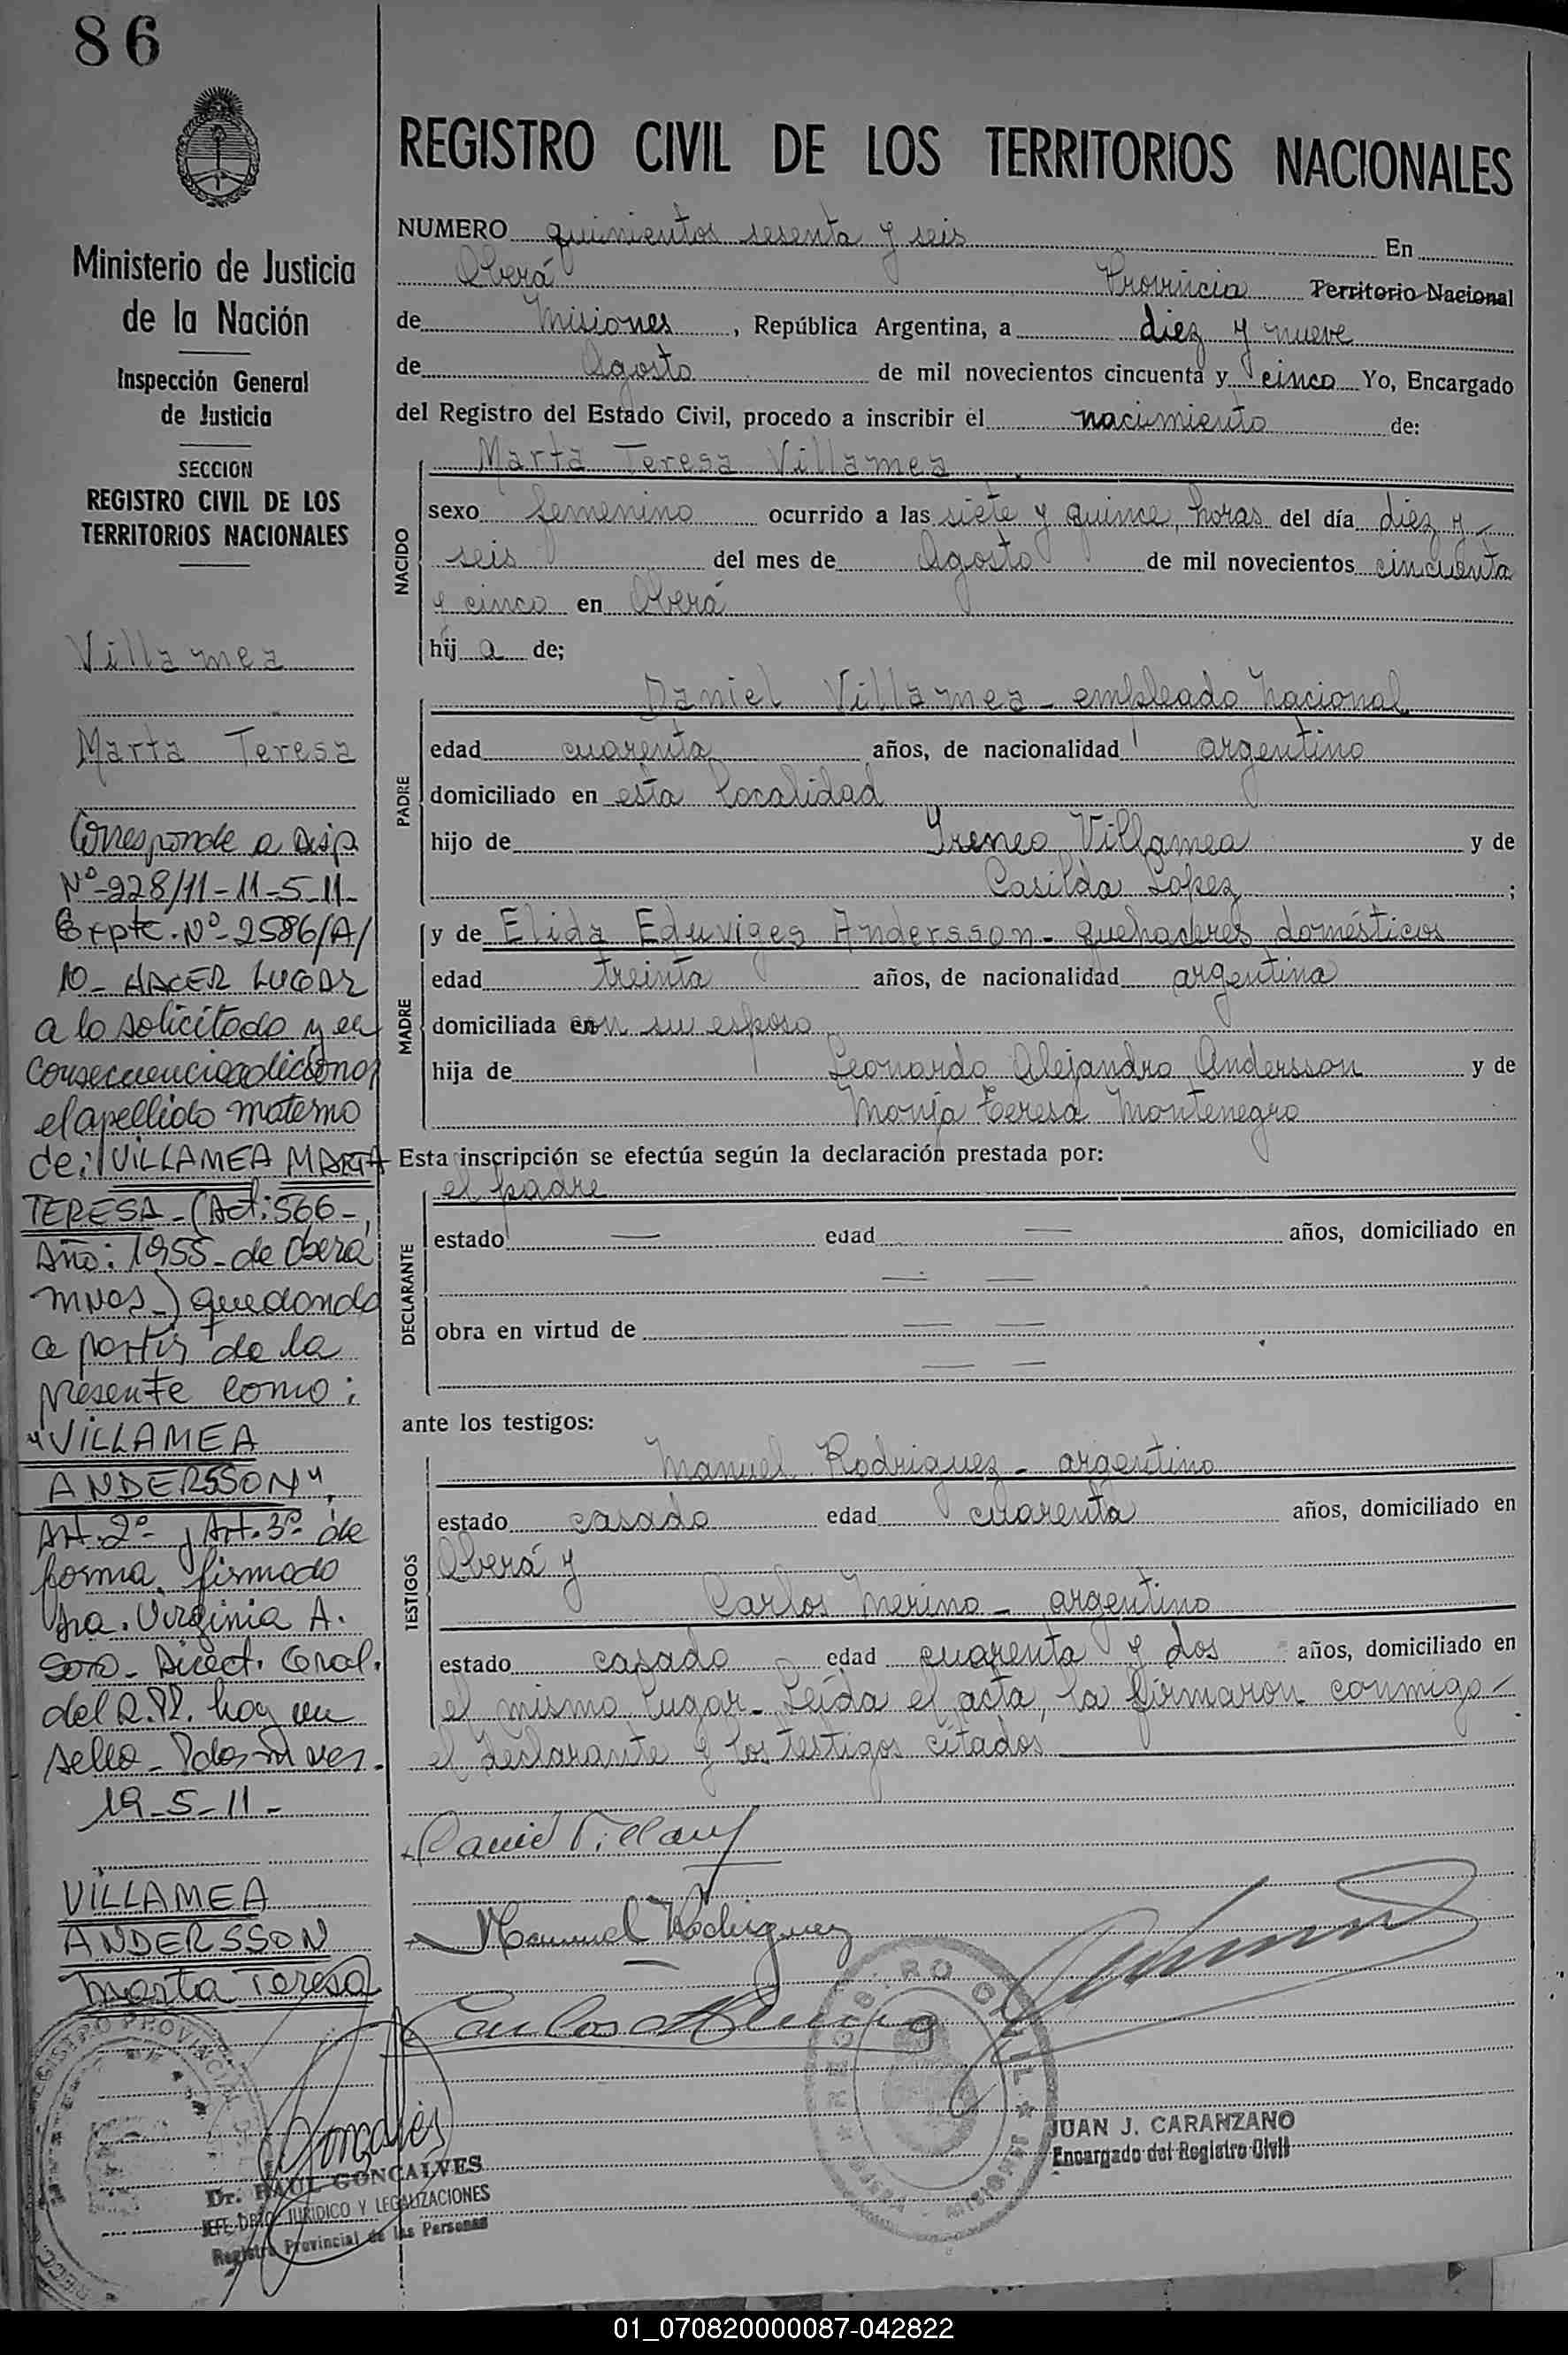 86
Ministerio de Justicia
de la Nación
Inspección General
de Justicia
SECCION
REGISTRO CIVIL DE LOS
TERRITORIOS NACIONALES
Villamea
Marta Teresa
Corresponde a Disp.
Nº-228/11-11-5-11-
Expte. Nº-2586/A/
10- HACER LUGAR
a lo solicitado y en
consecuencia adicionar
el apellido materno
de: VILLAMEA MARTA
TERESA-(Act: 566-,
Año: 1955-de Oberá
Mnes-) quedando
a partir de la
presente como:
"VILLAMEA
ANDERSSON",
Art. 2º- y Art. 3º- de
forma, firmado
Dra. Virginia A.
Soto- Direct. Gral.
del R.PP. hay un
sello- Pdas. Mnes.
19-5-11-
VILLAMEA
ANDERSSON
Marta Teresa
Dr. RAUL GONCALVES
JEFE DPTO JURIDICO Y LEGALIZACIONES
Registro Provincial de las Personas
REGISTRO CIVIL DE LOS TERRITORIOS NACIONALES
NUMERO quinientos sesenta y seis En
Oberá Provincia Territorio Nacional
de Misiones, República Argentina, a diez y nueve
de Agosto de mil novecientos cincuenta y cinco Yo, Encargado
del Registro del Estado Civil, procedo a inscribir el nacimiento de:
NACIDO
Marta Teresa Villamea
sexo femenino ocurrido a las siete y quince, horas del día diez y
seis del mes de Agosto de mil novecientos cincuenta
y cinco en Oberá
hij a de;
PADRE
Daniel Villamea - empleado nacional
edad cuarenta años, de nacionalidad argentino
domiciliado en esta localidad
hijo de Ireneo Villamea y de
Casilda Lopez ;
MADRE
y de Elida Eduviges Andersson - quehaceres domésticos
edad treinta años, de nacionalidad argentina
domiciliada con su esposo
hija de Leonardo Alejandro Andersson y de
Teresa Montenegro
Esta inscripción se efectúa según la declaración prestada por:
DECLARANTE
el padre
estado — edad — años, domiciliado en
— —
obra en virtud de — —
— —
ante los testigos:
TESTIGOS
Manuel Rodriguez - argentino
estado casado edad cuarenta años, domiciliado en
Oberá y
Carlos Merino - argentino
estado casado edad cuarenta y dos años, domiciliado en
el mismo lugar - Leída el acta, la firmaron conmigo -
el declarante y los testigos citados
Manuel Rodriguez
Carlos Merino
JUAN J. CARANZANO
Encargado del Registro Civil
01_070820000087-042822